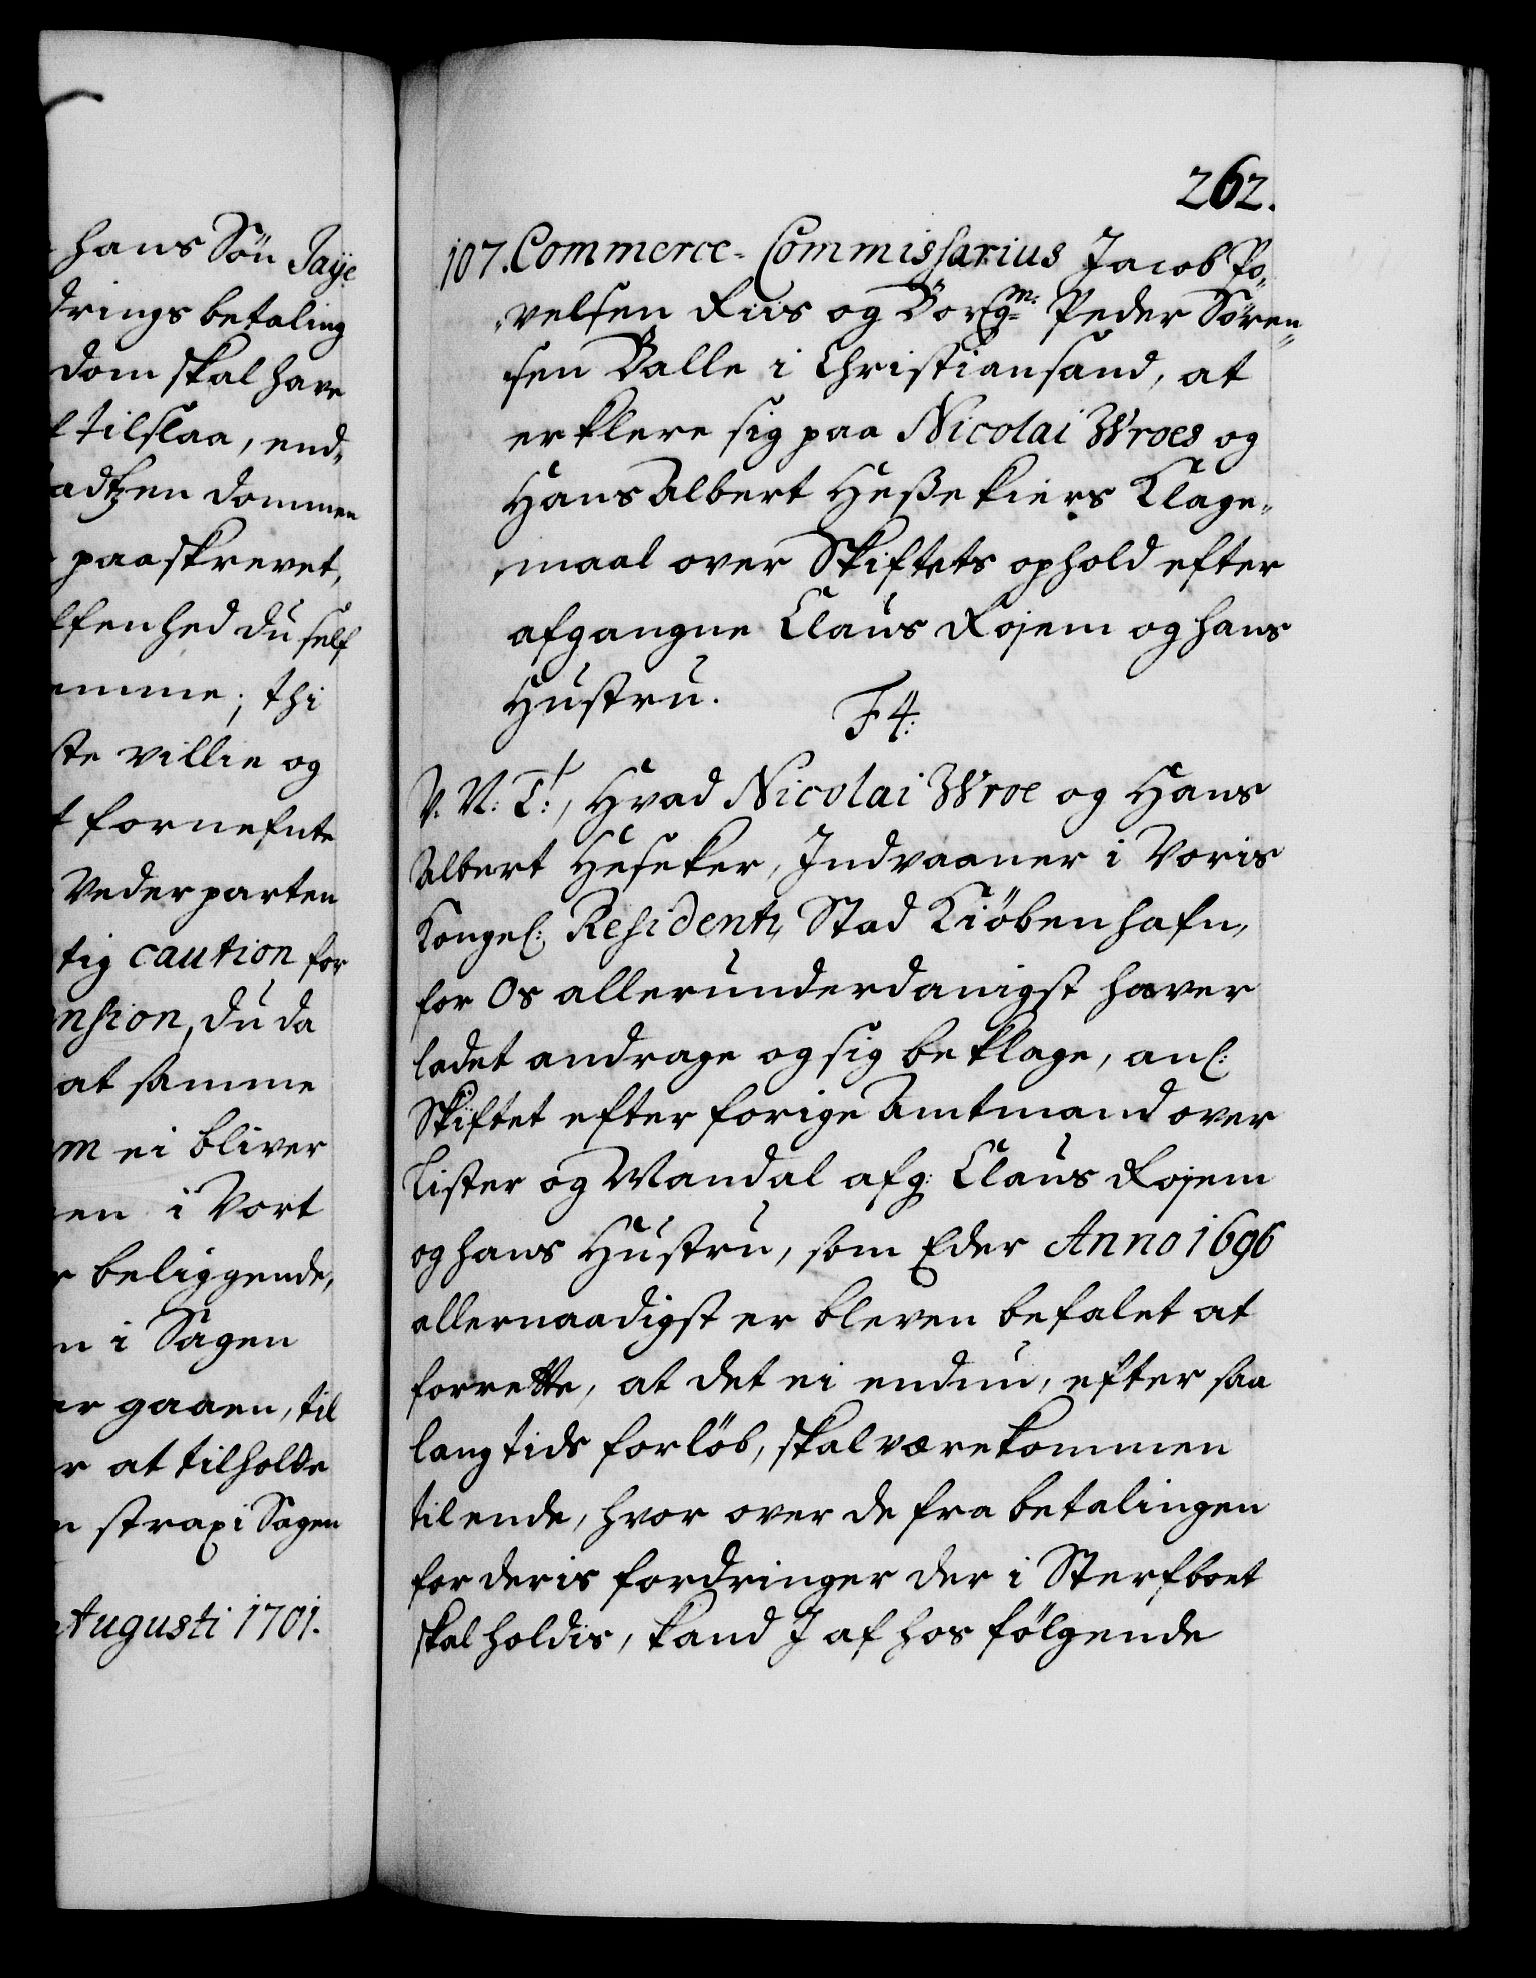 hans Søn Jaye
drings betaling
dom skal have
tilslaa, end„
adtzen dommen
paaskrevet,
fenhed du self
emme; thi
ste villie og
t fornefnte
Vederparten
tig caution for
nsion, du da
at samme
m ei bliver
en i Vort
r beliggende,
n i Sagen
er gaaen, til
r at tilholde
n strax i Sagen
Augusti 1701.
262.
107. Commerce-Commissarius Jacob Po„
„velsen Riis og Borgm: Peder Sören„
sen Balle i Christiansand, at
erklere sig paa Nicolai Wroes og
Hans Albert Heßekiers Klage„
maal over Skiftets ophold efter
afgangne Claus Röjem og hans
Hustru.
F 4:
V. N: T:, Hvad Nicolai Wroe og Hans
Albert Heseker, Indvaaner i Voris
Kongel: Residentz Stad Kiöbenhafn,
for Os allerunderdanigst haver
ladet andrage og sig beklage, anl:
Skiftet efter forige Amtmand over
Lister og Mandal afg: Claus Röjem
og hans Hustru, som Eder Anno 1696
allernaadigst er bleven befalet at
forrette, at det ei endnu, efter saa
lang tids forlöb, skal være kommen
til ende, hvor over de fra betalingen
for deris fordringer der i Sterfboet
skal holdis, kand I af hos fölgende